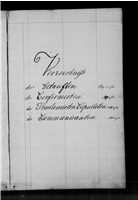 Verzeichniß
der Getauften
der Confirmirten
der Proclamirten Copulirten
der Communicanten